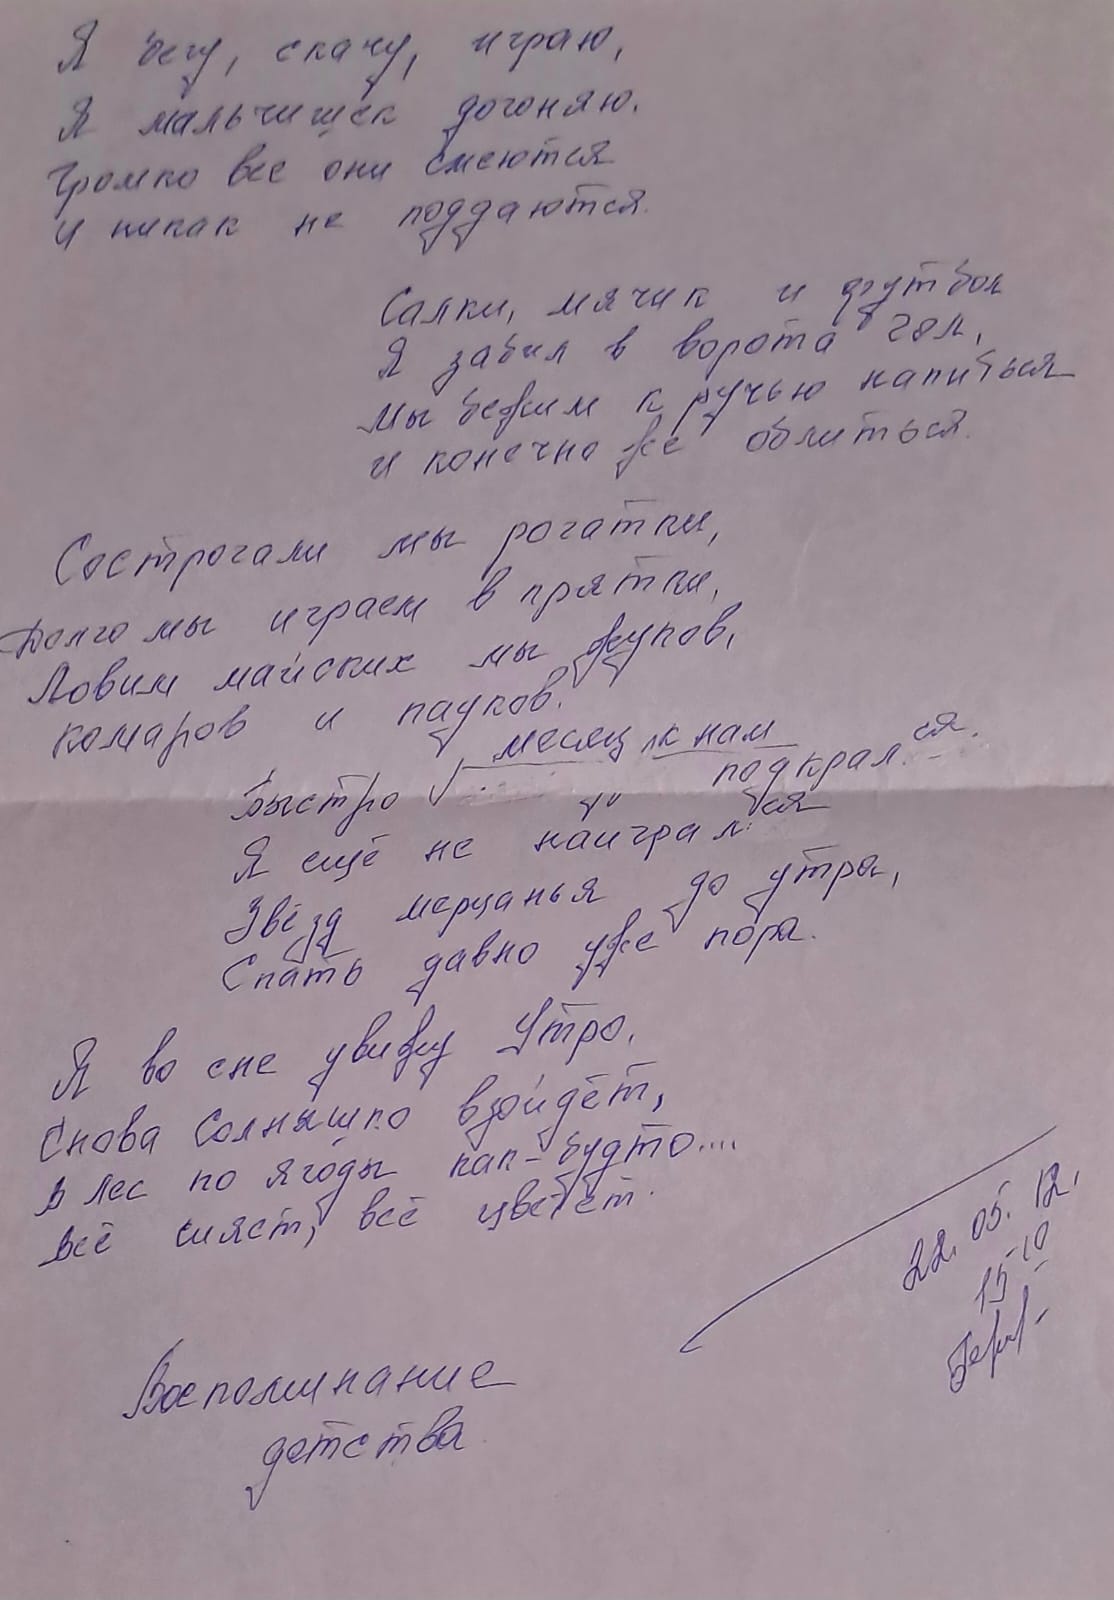 Я бегу, скачу, играю,
Я мальчишек догоняю.
Громко все они смеются
И никак не поддаются.
Салки, мячик и футбол
Я забил в ворота гол,
Мы бежим к ручью напиться
И конечно же облиться.
Сострогали мы рогатки,
Долго мы играем в прятки,
Ловим майских мы жуков,
комаров и пауков.
Быстро месяц к нам подкрался.
Я ещё не наигрался
Звёзд мерцанья до утра,
Спать давно уже пора.
Я во сне увижу Утро.
Снова Солнышко взойдёт,
В лес по ягоды как-будто....
Всё сияет, всё цветёт.
22.05.12.
15-10
Воспоминание
детства